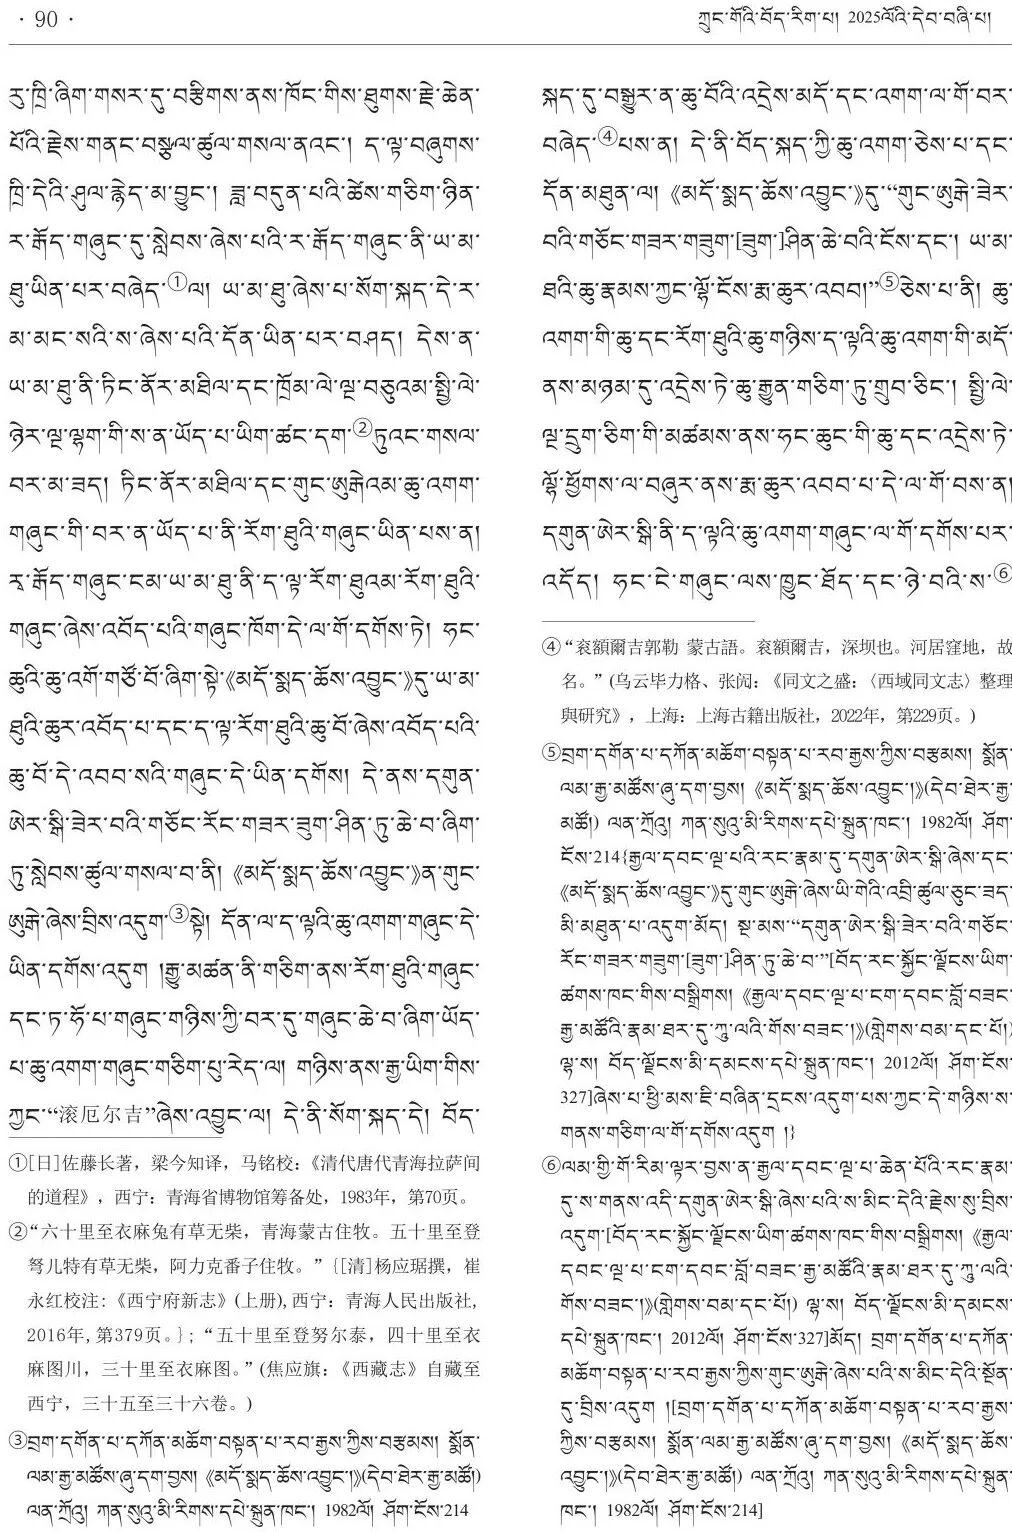 · 90 ·
ཀྲུང་གོའི་བོད་རིག་པ། 2025ལོའི་དེབ་བཞི་པ།
རུ་ཁྲི་ཞིག་གསར་དུ་བརྩིགས་ནས་ཁོང་གིས་ཐུགས་རྗེ་ཆེན་
པོའི་རྗེས་གནང་བསྩལ་ཚུལ་གསལ་ནའང་། ད་ལྟ་བཞུགས་
ཁྲི་དེའི་ཤུལ་རྙེད་མ་བྱུང་། ཟླ་བདུན་པའི་ཚེས་གཅིག་ཉིན་
ར་རྒོད་གཞུང་དུ་སླེབས་ཞེས་པའི་ར་རྒོད་གཞུང་ནི་ཡ་མ་
ཐུ་ཡིན་པར་བཞེད་①ལ། ཡ་མ་ཐུ་ཞེས་པ་སོག་སྐད་དེ་ར་
མ་མང་སའི་ས་ཞེས་པའི་དོན་ཡིན་པར་བཤད། དེས་ན་
ཡ་མ་ཐུ་ནི་ཏིང་ནོར་མཐིལ་དང་ཁྲོམ་ལེ་ལྔ་བཅུའམ་སྤྱི་ལེ་
ཉེར་ལྔ་ལྷག་གི་ས་ན་ཡོད་པ་ཡིག་ཚང་དག་②ཏུའང་གསལ་
བར་མ་ཟད། ཏིང་ནོར་མཐིལ་དང་གུང་ཨུརྒེའམ་ཆུ་འགག་
གཞུང་གི་བར་ན་ཡོད་པ་ནི་རོག་ཐུའི་གཞུང་ཡིན་པས་ན།
ར་རྒོད་གཞུང་ངམ་ཡ་མ་ཐུ་ནི་ད་ལྟ་རོག་ཐུའམ་རོག་ཐུའི་
གཞུང་ཞེས་འབོད་པའི་གཞུང་ཁོག་དེ་ལ་གོ་དགོས་ཏེ། ཧང་
ཆུའི་ཆུ་འགོ་གཙོ་བོ་ཞིག་སྟེ་《མདོ་སྨད་ཆོས་འབྱུང་》དུ་ཡ་མ་
ཐུའི་ཆུར་འབོད་པ་དང་ད་ལྟ་རོག་ཐུའི་ཆུ་བོ་ཞེས་འབོད་པའི་
ཆུ་བོ་དེ་འབབ་སའི་གཞུང་དེ་ཡིན་དགོས། དེ་ནས་དགུན་
ཨེར་སྒི་ཟེར་བའི་གཅོང་རོང་གཟར་ཟུག་ཤིན་ཏུ་ཆེ་བ་ཞིག་
ཏུ་སླེབས་ཚུལ་གསལ་བ་ནི། 《མདོ་སྨད་ཆོས་འབྱུང་》ན་གུང་
ཨུརྒེ་ཞེས་བྲིས་འདུག་③སྟེ། དོན་ལ་ད་ལྟའི་ཆུ་འགག་གཞུང་དེ་
ཡིན་དགོས་འདུག །རྒྱུ་མཚན་ནི་གཅིག་ནས་རོག་ཐུའི་གཞུང་
དང་ཏ་ཧོ་པ་གཞུང་གཉིས་ཀྱི་བར་དུ་གཞུང་ཆེ་བ་ཞིག་ཡོད་
པ་ཆུ་འགག་གཞུང་གཅིག་པུ་རེད་ལ། གཉིས་ནས་རྒྱ་ཡིག་གིས་
ཀྱང་“滚厄尔吉”ཞེས་འབྱུང་ལ། དེ་ནི་སོག་སྐད་དེ། བོད་
①[日]佐藤长著，梁今知译，马铭校：《清代唐代青海拉萨间
的道程》，西宁：青海省博物馆筹备处，1983年，第70页。
②“六十里至衣麻兔有草无柴，青海蒙古住牧。五十里至登
弩儿特有草无柴，阿力克番子住牧。”{[清]杨应琚撰，崔
永红校注：《西宁府新志》(上册),西宁：青海人民出版社,
2016年,第379页。};“五十里至登努尔泰，四十里至衣
麻图川，三十里至衣麻图。”(焦应旗：《西藏志》自藏至
西宁，三十五至三十六卷。)
③བྲག་དགོན་པ་དཀོན་མཆོག་བསྟན་པ་རབ་རྒྱས་ཀྱིས་བརྩམས། སྨོན་
ལམ་རྒྱ་མཚོས་ཞུ་དག་བྱས། 《མདོ་སྨད་ཆོས་འབྱུང་།》(དེབ་ཐེར་རྒྱ་མཚོ།)
ལན་ཀྲོའུ། ཀན་སུའུ་མི་རིགས་དཔེ་སྐྲུན་ཁང་། 1982ལོ། ཤོག་ངོས་214
སྐད་དུ་བསྒྱུར་ན་ཆུ་བོའི་འདྲེས་མདོ་དང་འགག་ལ་གོ་བར་
བཞེད་④པས་ན། དེ་ནི་བོད་སྐད་ཀྱི་ཆུ་འགག་ཅེས་པ་དང་
དོན་མཐུན་ལ། 《མདོ་སྨད་ཆོས་འབྱུང་》དུ“གུང་ཨུརྒེ་ཟེར་
བའི་གཅོང་གཟར་གཟུག་[ཟུག་]ཤིན་ཆེ་བའི་ངོས་དང་། ཡ་མ་
ཐའི་ཆུ་རྣམས་ཀྱང་ལྷོ་ངོས་རྨ་ཆུར་འབབ།”⑤ཅེས་པ་ནི། ཆུ་
འགག་གི་ཆུ་དང་རོག་ཐུའི་ཆུ་གཉིས་ད་ལྟའི་ཆུ་འགག་གི་མདོ་
ནས་མཉམ་དུ་འདྲེས་ཏེ་ཆུ་རྒྱུན་གཅིག་ཏུ་གྲུབ་ཅིང་། སྤྱི་ལེ་
ལྔ་དྲུག་ཅིག་གི་མཚམས་ནས་ཧང་ཆུང་གི་ཆུ་དང་འདྲེས་ཏེ་
ལྷོ་ཕྱོགས་ལ་བཞུར་ནས་རྨ་ཆུར་འབབ་པ་དེ་ལ་གོ་བས་ན།
དགུན་ཨེར་སྒི་ནི་ད་ལྟའི་ཆུ་འགག་གཞུང་ལ་གོ་དགོས་པར་
འདོད། ཧང་ངེ་གཞུང་ལས་ཁྱུང་ཐོད་དང་ཉེ་བའི་ས་⑥
④“袞額爾吉郭勒 蒙古語。袞額爾吉，深坝也。河居窪地，故
名。”(乌云毕力格、张闶：《同文之盛：〈西域同文志〉整理
與研究》，上海：上海古籍出版社，2022年，第229页。)
⑤བྲག་དགོན་པ་དཀོན་མཆོག་བསྟན་པ་རབ་རྒྱས་ཀྱིས་བརྩམས། སྨོན་
ལམ་རྒྱ་མཚོས་ཞུ་དག་བྱས། 《མདོ་སྨད་ཆོས་འབྱུང་།》(དེབ་ཐེར་རྒྱ་
མཚོ།) ལན་ཀྲོའུ། ཀན་སུའུ་མི་རིགས་དཔེ་སྐྲུན་ཁང་། 1982ལོ། ཤོག་
ངོས་214{རྒྱལ་དབང་ལྔ་པའི་རང་རྣམ་དུ་དགུན་ཨེར་སྒི་ཞེས་དང་
《མདོ་སྨད་ཆོས་འབྱུང་》དུ་གུང་ཨུརྒེ་ཞེས་ཡི་གེའི་འབྲི་ཚུལ་ཅུང་ཟད་
མི་མཐུན་པ་འདུག་མོད། སྔ་མས་“དགུན་ཨེར་སྒི་ཟེར་བའི་གཅོང་
རོང་གཟར་གཟུག་[ཟུག་]ཤིན་ཏུ་ཆེ་བ་”[བོད་རང་སྐྱོང་ལྗོངས་ཡིག་
ཚགས་ཁང་གིས་བསྒྲིགས། 《རྒྱལ་དབང་ལྔ་པ་ངག་དབང་བློ་བཟང་
རྒྱ་མཚོའི་རྣམ་ཐར་དུ་ཀཱུ་ལའི་གོས་བཟང་།》(གླེགས་བམ་དང་པོ།)
ལྷ་ས། བོད་ལྗོངས་མི་དམངས་དཔེ་སྐྲུན་ཁང་། 2012ལོ། ཤོག་ངོས་
327]ཞེས་པ་ཕྱི་མས་ཇི་བཞིན་དྲངས་འདུག་པས་ཀྱང་དེ་གཉིས་ས་
གནས་གཅིག་ལ་གོ་དགོས་འདུག །}
⑥ལམ་གྱི་གོ་རིམ་ལྟར་བྱས་ན་རྒྱལ་དབང་ལྔ་པ་ཆེན་པོའི་རང་རྣམ་
དུ་ས་གནས་འདི་དགུན་ཨེར་སྒི་ཞེས་པའི་ས་མིང་དེའི་རྗེས་སུ་བྲིས་
འདུག་[བོད་རང་སྐྱོང་ལྗོངས་ཡིག་ཚགས་ཁང་གིས་བསྒྲིགས། 《རྒྱལ་
དབང་ལྔ་པ་ངག་དབང་བློ་བཟང་རྒྱ་མཚོའི་རྣམ་ཐར་དུ་ཀཱུ་ལའི་
གོས་བཟང་།》(གླེགས་བམ་དང་པོ།) ལྷ་ས། བོད་ལྗོངས་མི་དམངས་
དཔེ་སྐྲུན་ཁང་། 2012ལོ། ཤོག་ངོས་327]མོད། བྲག་དགོན་པ་དཀོན་
མཆོག་བསྟན་པ་རབ་རྒྱས་ཀྱིས་གུང་ཨུརྒེ་ཞེས་པའི་ས་མིང་དེའི་སྔོན་
དུ་བྲིས་འདུག །[བྲག་དགོན་པ་དཀོན་མཆོག་བསྟན་པ་རབ་རྒྱས་
ཀྱིས་བརྩམས། སྨོན་ལམ་རྒྱ་མཚོས་ཞུ་དག་བྱས། 《མདོ་སྨད་ཆོས་
འབྱུང་།》(དེབ་ཐེར་རྒྱ་མཚོ།) ལན་ཀྲོའུ། ཀན་སུའུ་མི་རིགས་དཔེ་སྐྲུན་
ཁང་། 1982ལོ། ཤོག་ངོས་214]